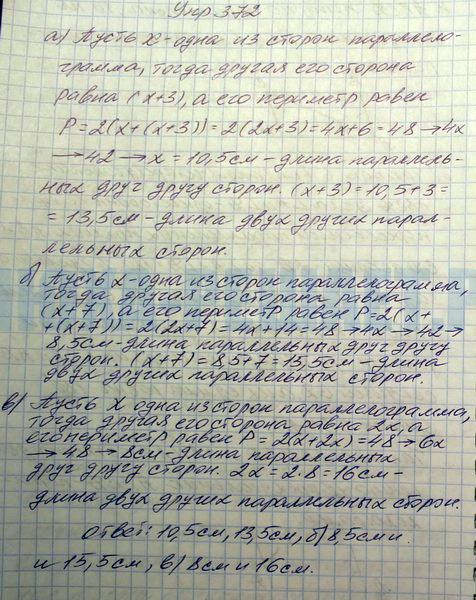 Упр 372
а) Пусть х-одна из сторон паралелло-
грамма, тогда другая его сторона
равна (х+3), а его периметр равен
Р=2(х+(х+3))=2(2х+3)=4х+6=48→4х
→42→х=10,5см-длина параллель-
ных друг другу сторон. (х+3)=10,5+3=
=13,5см-длина двух других парал-
лельных сторон.
б) Пусть х-одна из сторон параллелограмма,
тогда другая его сторона равна
(х+7), а его периметр равен Р=2(х+
+(х+7))=2(2х+7)=4х+14=48→4х→42→
8,5см-длина параллельных друг другу
сторон. (х+7)=8,5+7=15,5см-длина
двух других параллельных сторон.
в) Пусть х одна из сторон параллелограмма,
тогда другая его сторона равна 2х, а
его периметр равен Р=2(х+2х)=48→6х
→48→8см-длина параллельных
друг другу сторон. 2х=2·8=16см-
длина двух других параллельных сторон.
ответ: 10,5см, 13,5см, б) 8,5см и
и 15,5см, в) 8см и 16см.